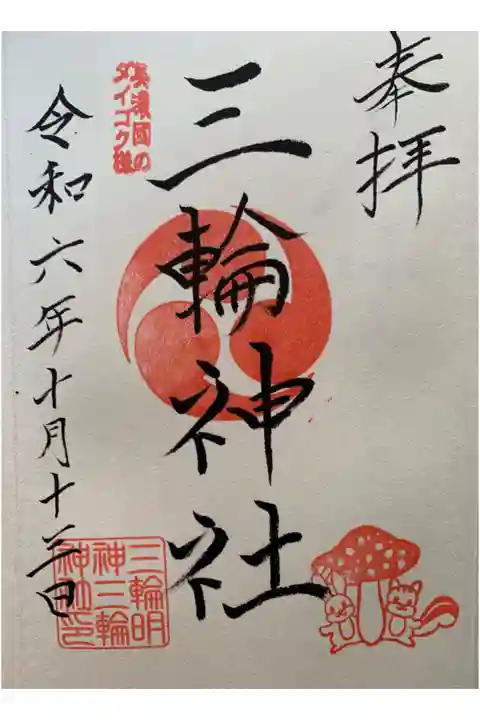 奉拝
三輪神社
美濃國の
ダイコク様
令和六年十月十三日
三輪明
神三輪
神社印